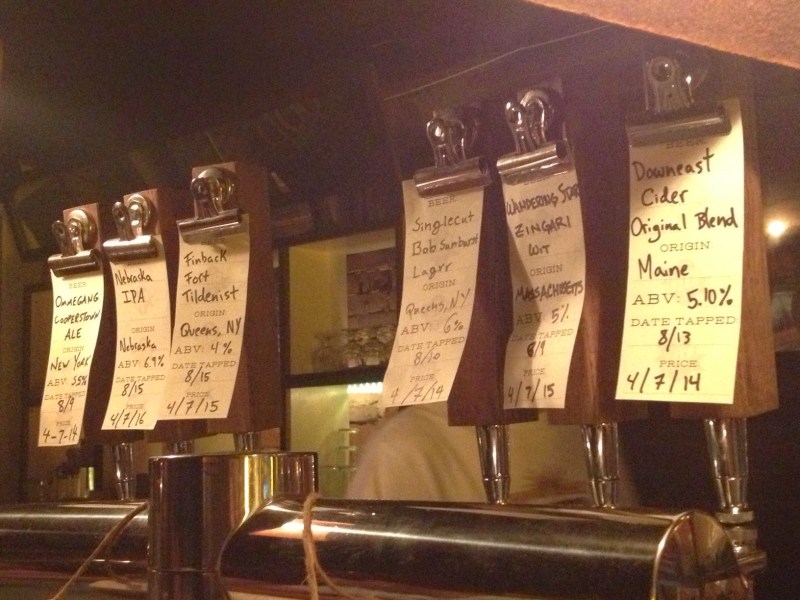 BEER
OMMEGANG
COOPERSTOWN
ALE
ORIGIN
NEW YORK
ABV: 5.5%
DATE TAPPED
8/9
PRICE
4-7-14
Nebraska
IPA
ORIGIN
Nebraska
ABV: 6.9%
DATE TAPPED
8/15
PRICE
4/7/16
Finback
Fort
Tildenist
ORIGIN
Queens, NY
ABV: 4%
DATE TAPPED
8/15
PRICE
4/7/15
BEER
Singlecut
Bob Sunburst
Lagrr
ORIGIN
Queens, NY
ABV: 6%
DATE TAPPED
8/10
PRICE
4/7/14
BEER
WANDERING STAR
ZINGARI
WIT
ORIGIN
MASSACHUSETTS
ABV: 5%
DATE TAPPED
8/9
PRICE
4/7/15
BEER
Downeast
Cider
Original Blend
ORIGIN
Maine
ABV: 5.10%
DATE TAPPED
8/13
PRICE
4/7/14